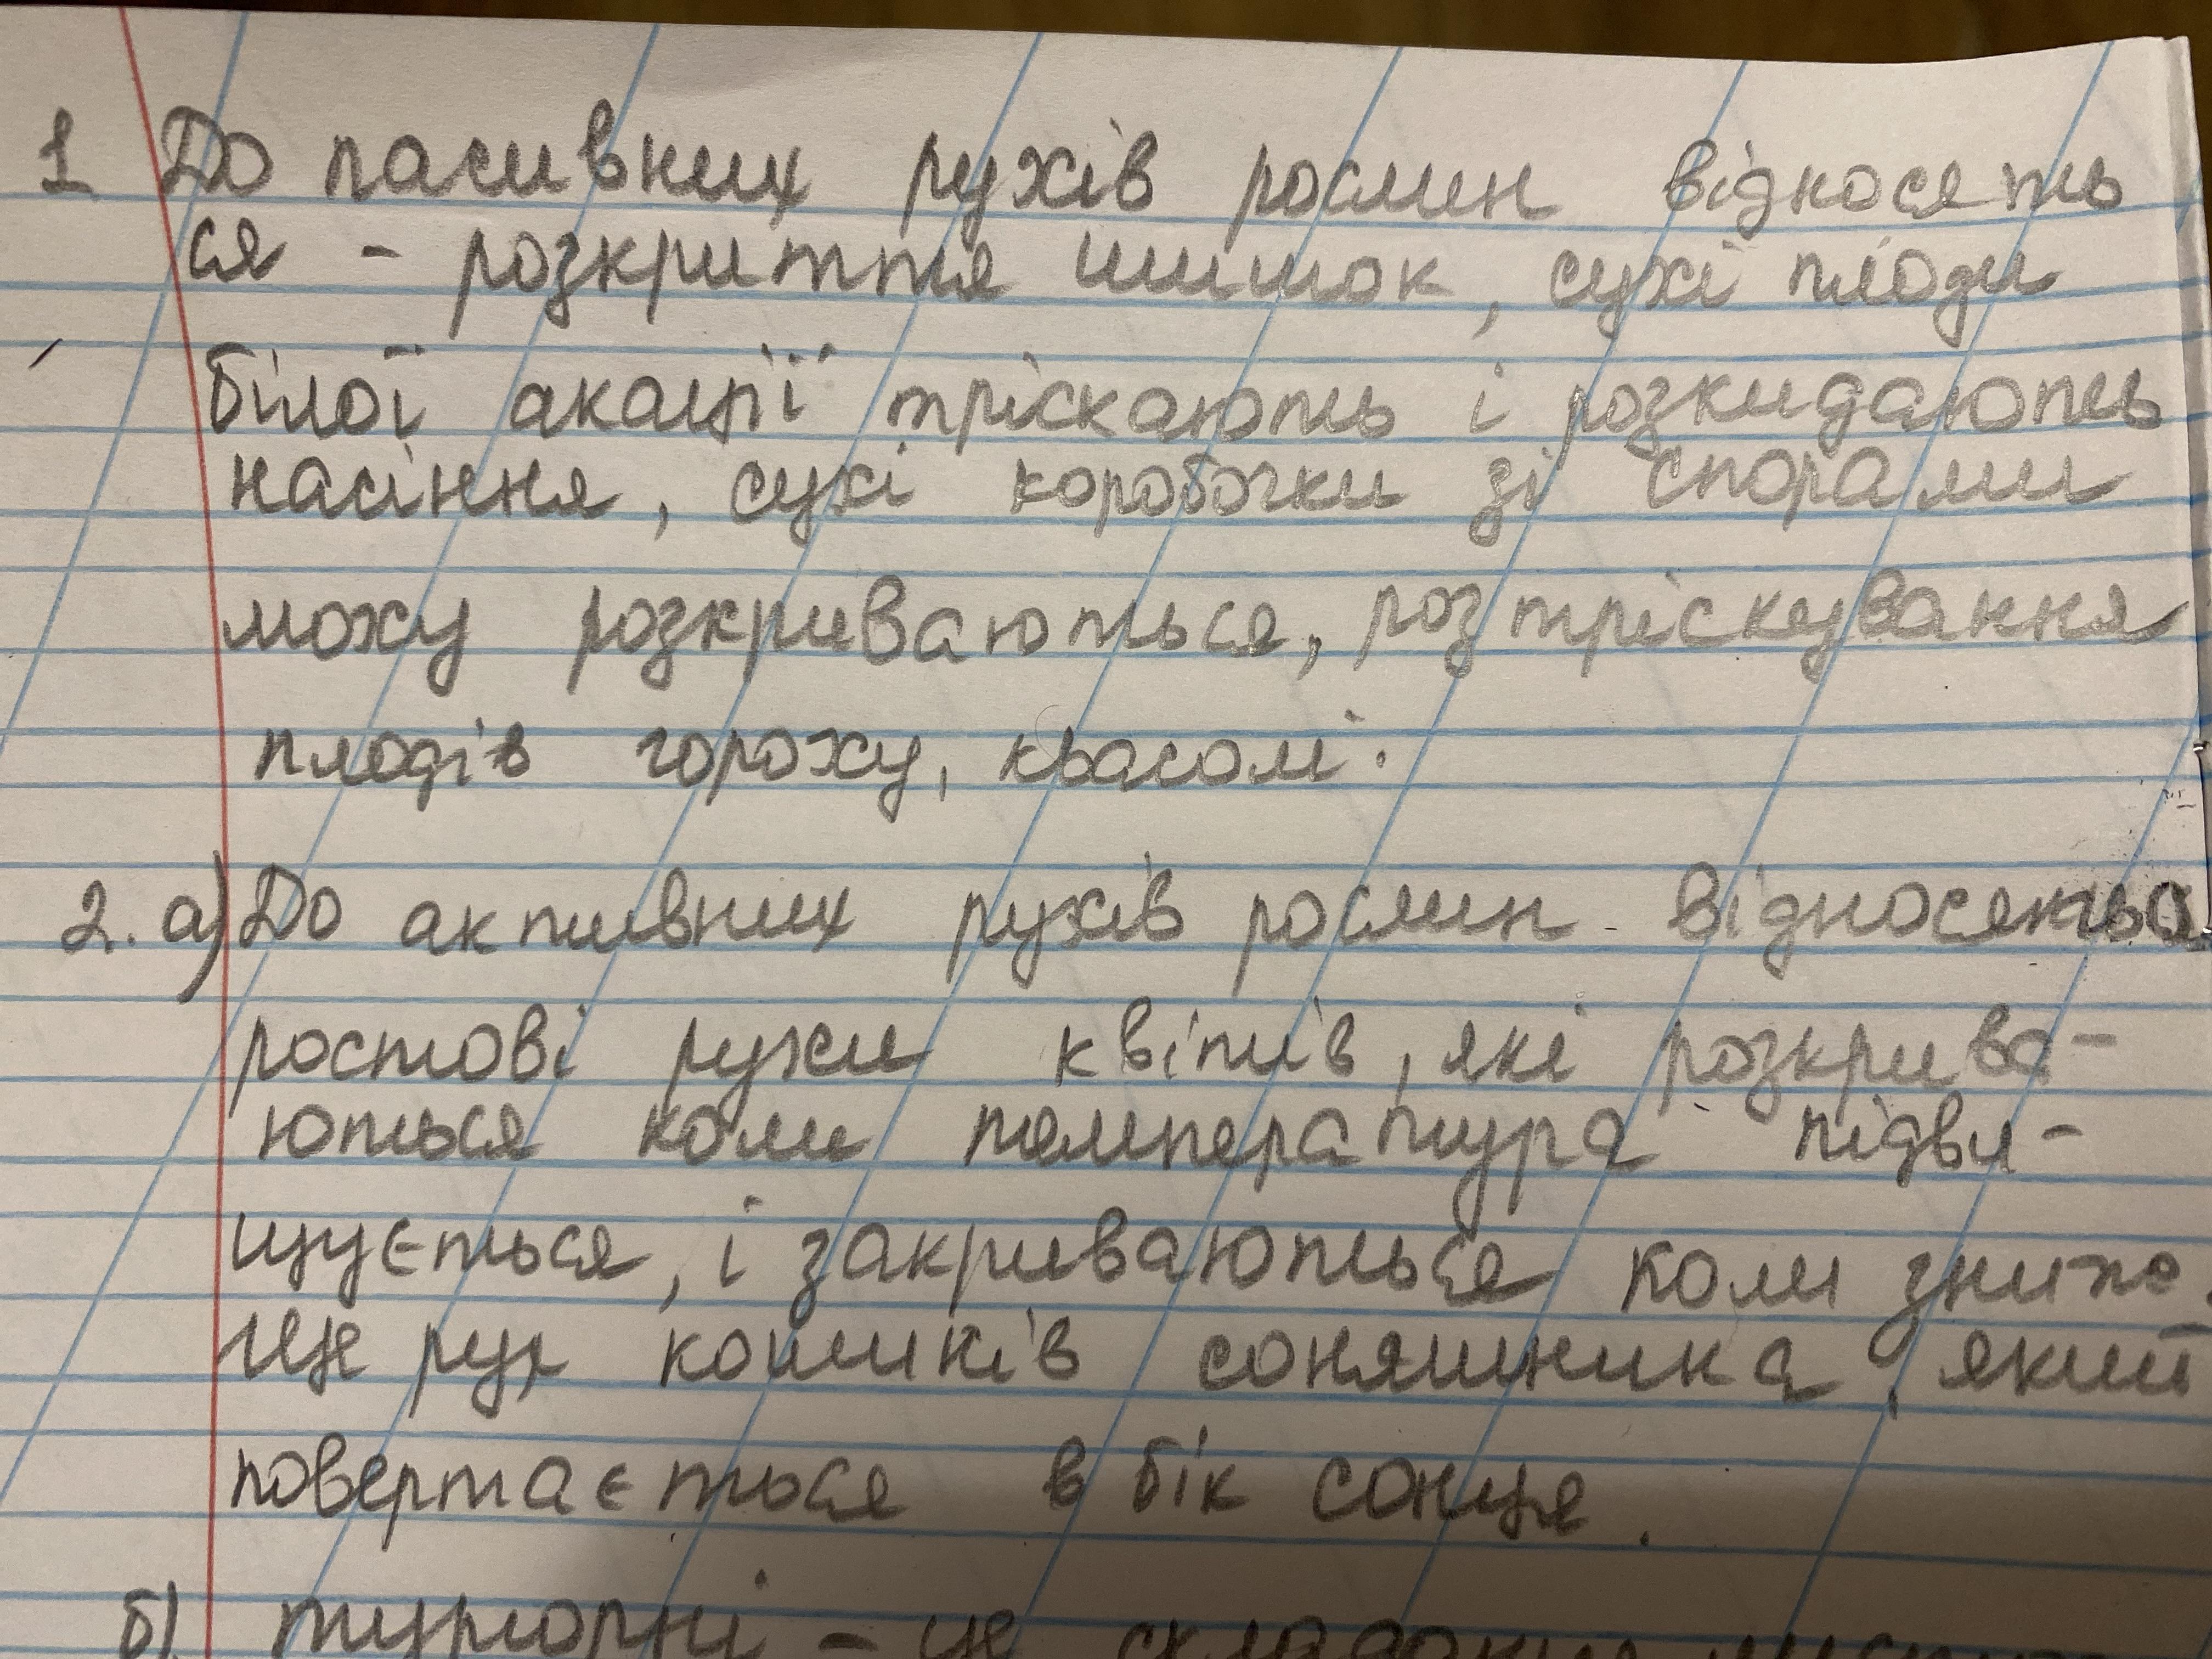 1 До пасивних рухів рослин відносять
ся - розкриття шишок, сухі плоди
білої акації тріскають і розкидають
насіння, сухі коробочки зі спорами
моху розкриваються, розтріскування
плодів гороху, квасолі.
2. а) До активних рухів рослин відносяться
ростові рухи квітів, які розкрива-
ються коли температура підви-
щується, і закриваються коли зниже.
Це рух кошиків соняшника, який
повертається в бік сонця.
б) тургорні - це складання